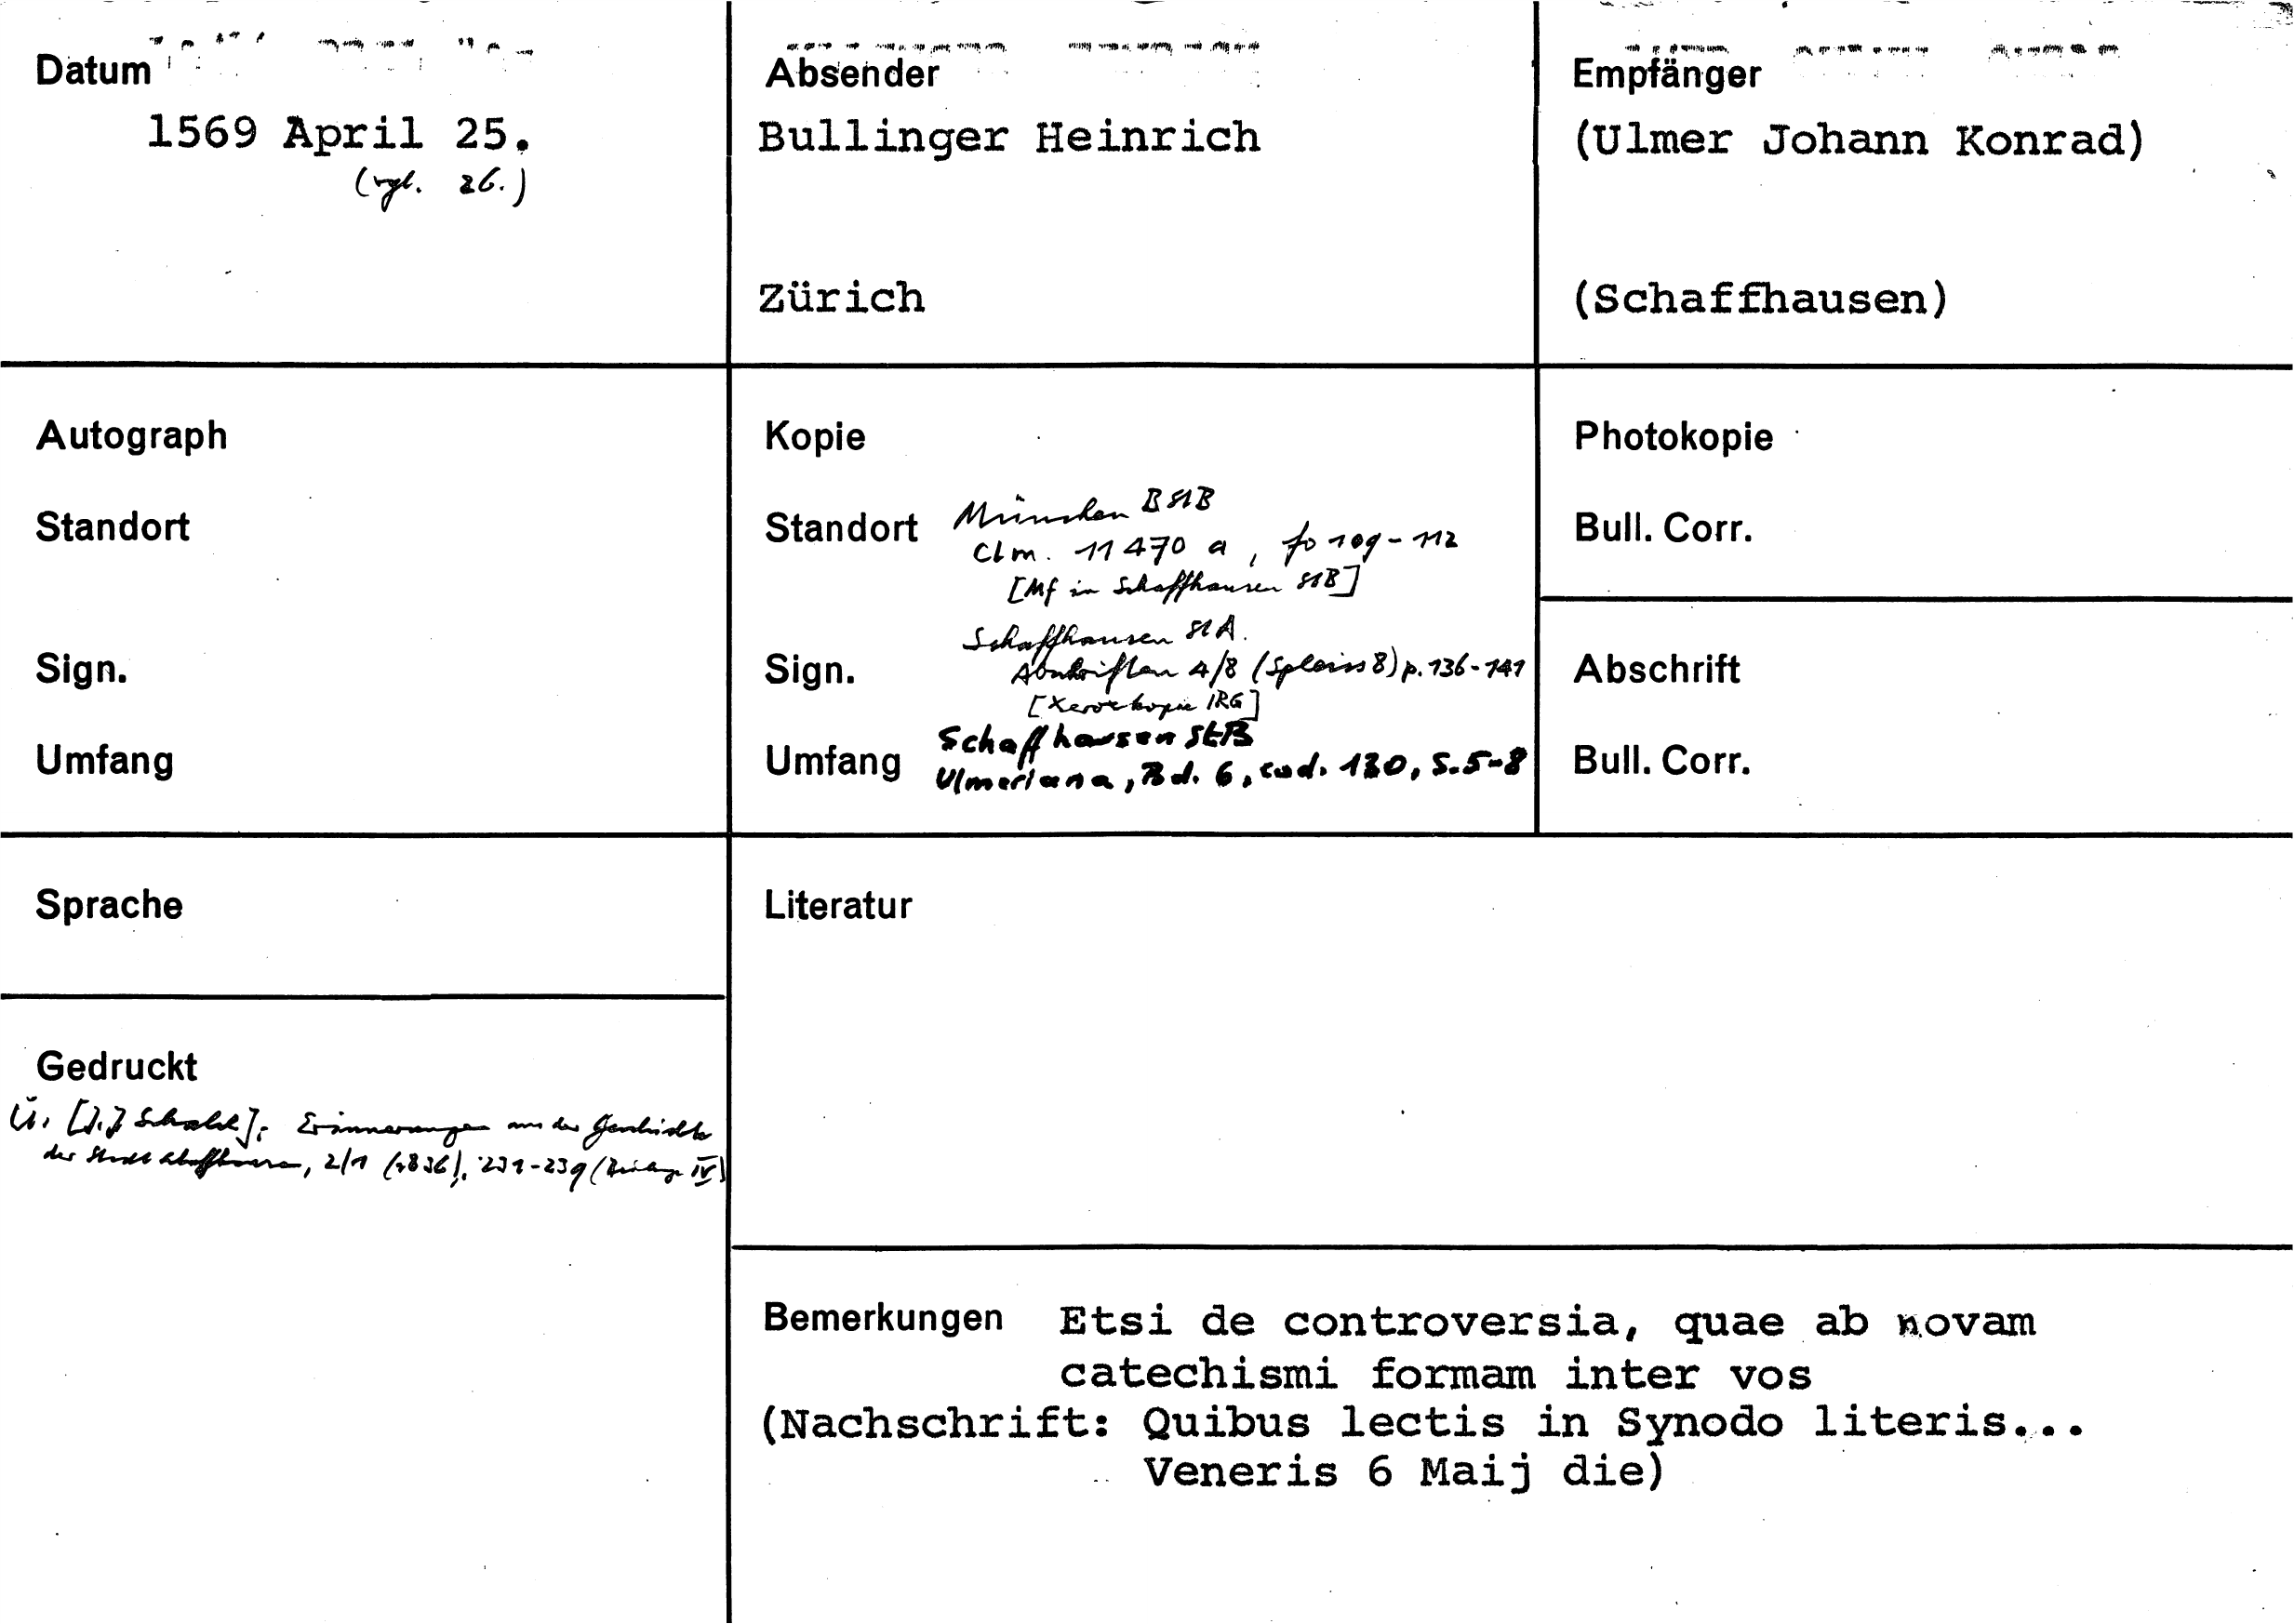 Datum
1569 April 25.
(vgl. 26.)
Absender
Bullinger Heinrich
Zürich
Empfänger
(Ulmer Johann Konrad)
(Schaffhausen)
Autograph
Standort
Sign.
Umfang
Kopie
Standort München BStB
Clm. 11470 a, fo 109-112
[Mf in Schaffhausen StB]
Schaffhausen StA.
Sign. Abschriften 4/8 (Spleiss 8) p. 136-141
[Xerokopie IRG]
Schaffhausen StB
Umfang Ulmeriana, Bd. 6, cod. 130, S. 5-8
Photokopie
Bull. Corr.
Abschrift
Bull. Corr.
Sprache
Gedruckt
Ü. [J.J Schalch], Erinnerungen aus der Geschichte
der Stadt Schaffhausen, 2/1 (1836), 231-239 (Beilage IV)
Literatur
Bemerkungen Etsi de controversia, quae ab novam
catechismi formam inter vos
(Nachschrift: Quibus lectis in Synodo literis...
Veneris 6 Maij die)